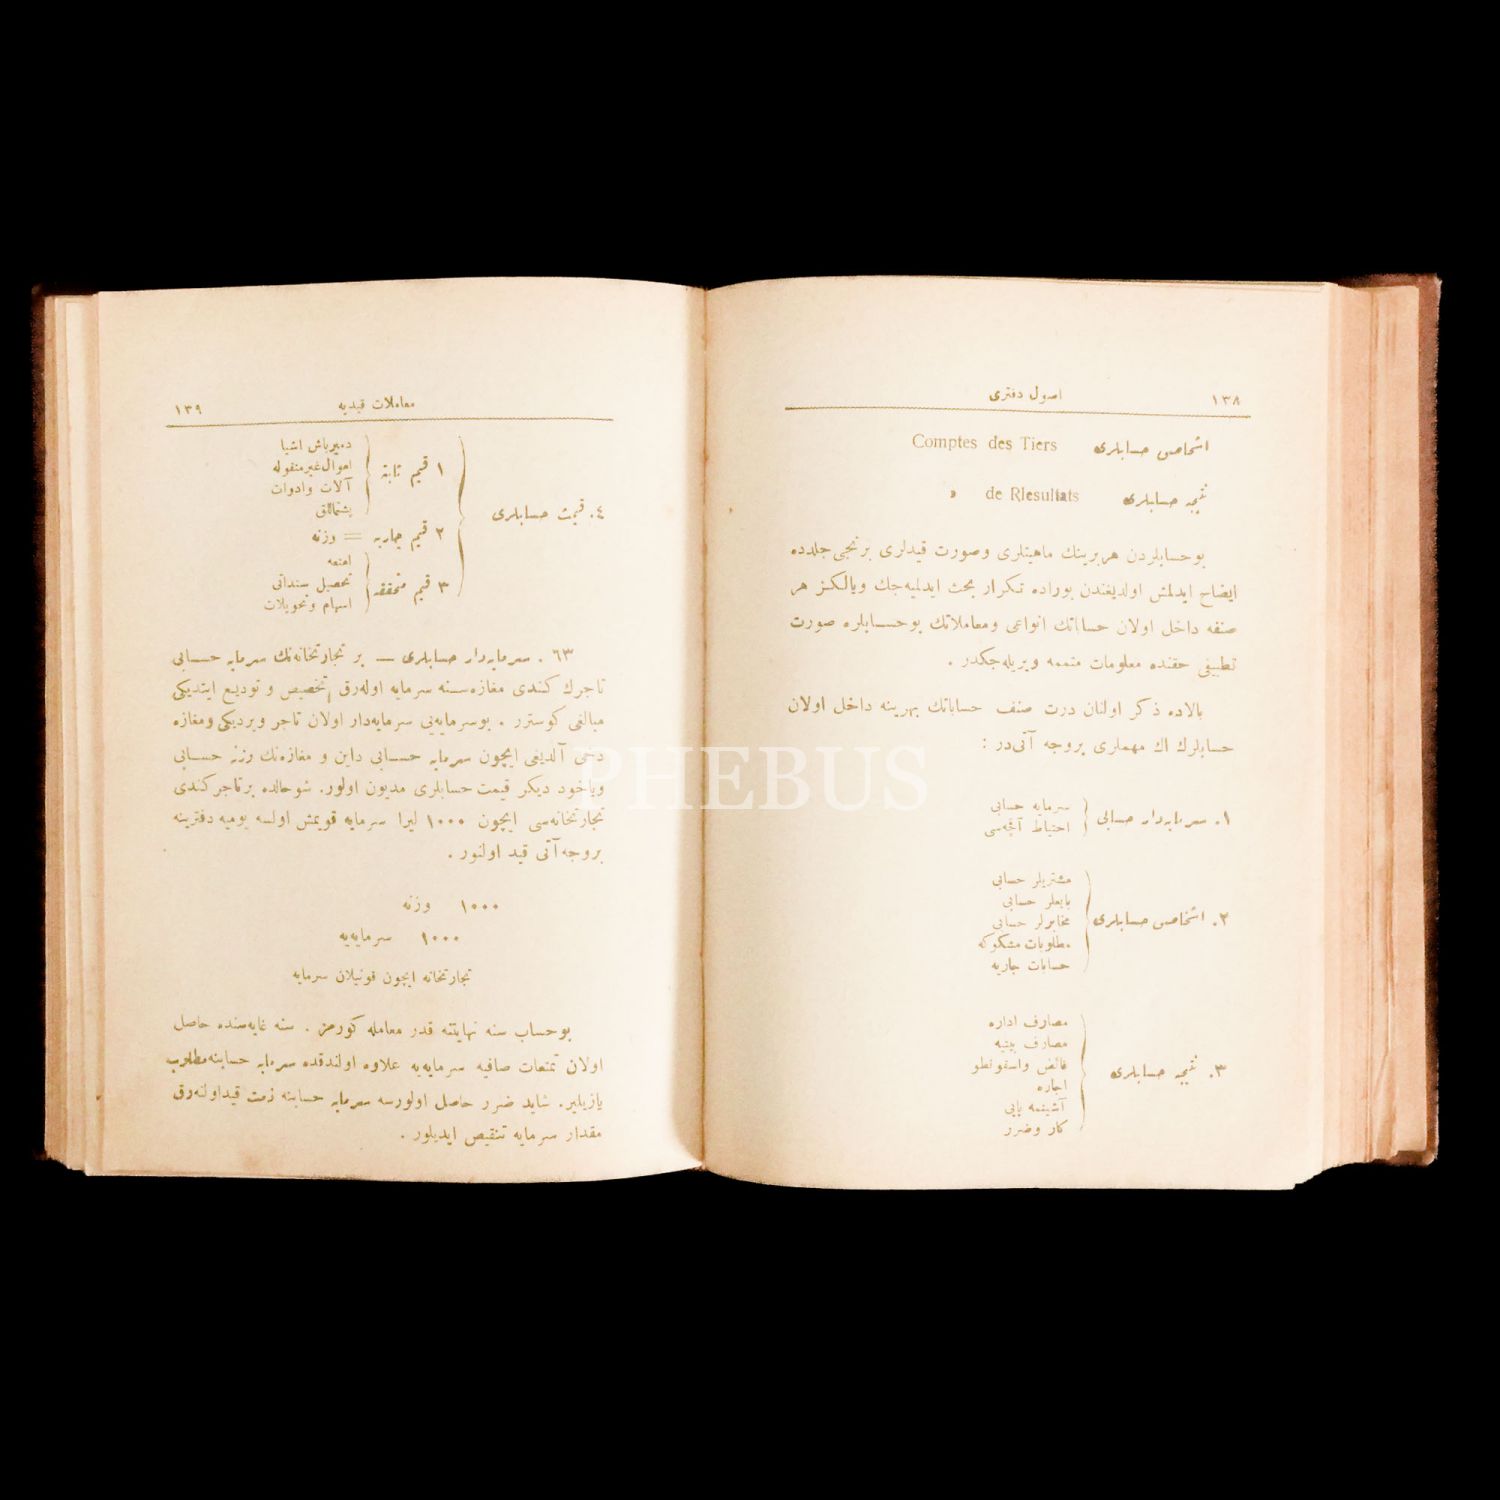 ١٣٨
اصول دفتری
اشخاص حسابلری Comptes des Tiers
نتیجه حسابلری de Rlesultats »
بوحسابلردن هربرینك ماهیتلری وصورت قیدلری برنجی جلدده
ایضاح ایدلمش اولدیغندن بوراده تکرار بحث ایدلمیه‌جك ویالکز هر
صنفه داخل اولان حساباتك انواعی ومعاملاتك بوحسابلره صورت
تطبیقی حقنده معلومات متممه ویریله‌جکدر .
بالاده ذکر اولنان درت صنف حساباتك بهرینه داخل اولان
حسابلرك اك مهملری بروجه آتی‌در :
١. سرمایه‌دار حسابی
سرمایه حسابی
احتیاط آقچه‌سی
٢. اشخاص حسابلری
مشتریلر حسابی
بایعلر حسابی
مخابرلر حسابی
مطلوبات مشکوکه
حسابات جاریه
٣. نتیجه حسابلری
مصارف اداره
مصارف بیتیه
فائض واسقونطو
اجاره
آشینمه پایی
کار وضرر
معاملات قیدیه
١٣٩
٤. قیمت حسابلری
١ قیم ثابته
دمیرباش اشیا
اموال غیرمنقوله
آلات وادوات
پشتمالق
٢ قیم جاریه = وزنه
٣ قیم متحققه
امتعه
تحصیل سنداتی
اسهام وتحویلات
٦٣ . سرمایه‌دار حسابلری — بر تجارتخانه‌نك سرمایه حسابی
تاجرك کندی مغازه‌سنه سرمایه اوله‌رق تخصیص و تودیع ایتدیکی
مبالغی کوسترر . بوسرمایه‌یی سرمایه‌دار اولان تاجر ویردیکی ومغازه
دخی آلدیغی ایچون سرمایه حسابی داین و مغازه‌نك وزنه حسابی
ویاخود دیکر قیمت حسابلری مدیون اولور. شو حالده برتاجر کندی
تجارتخانه‌سی ایچون ١٠٠٠ لیرا سرمایه قویمش اولسه یومیه دفترینه
بروجه آتی قید اولنور .
١٠٠٠ وزنه
١٠٠٠ سرمایه‌یه
تجارتخانه ایچون قونیلان سرمایه
بوحساب سنه نهایتنه قدر معامله کورمز . سنه غایه‌سنده حاصل
اولان تمتعات صافیه سرمایه‌یه علاوه اولندقده سرمایه حسابنه مطلوب
یازیلیر. شاید ضرر حاصل اولورسه سرمایه حسابنه ذمت قیداولنه‌رق
مقدار سرمایه تنقیص ایدیلور .
PHEBUS